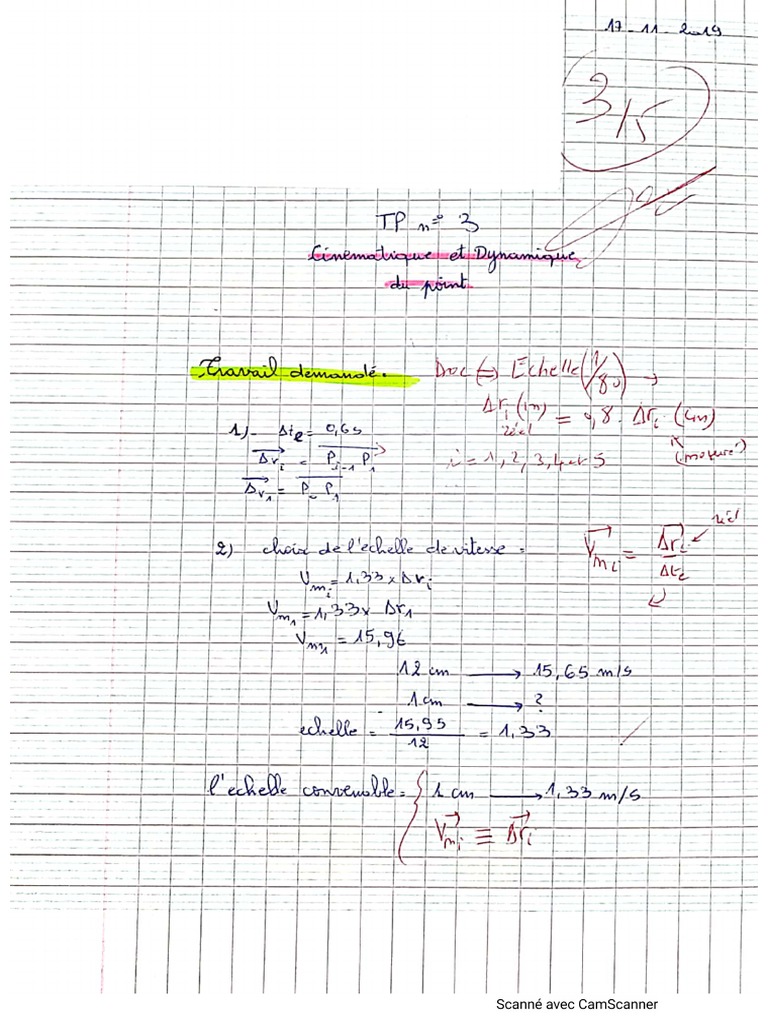 17-11-2019
3/5
TP n° 3
Cinématique et Dynamique
du point
Travail demandé. Doc ⇔ Echelle (1/80) →
Δri (m) = 0,8. Δri (cm)
réel (mesuré)
i = 1, 2, 3, 4 et 5
1)_ Δte = 0,6s
Δri = Pi-1 Pi
Δr1 = P0 P1
2) choix de l'echelle de vitesse =
Vmi = Δri réel / Δte
Vmi = 1,33 x Δri
Vm1 = 1,33 x Δr1
Vm1 = 15,96
12 cm → 15,65 m/s
1 cm → ?
echelle = 15,95 / 12 = 1,33
l'echelle convenable = { 1 cm → 1,33 m/s
Vmi ≡ Δri
Scanné avec CamScanner